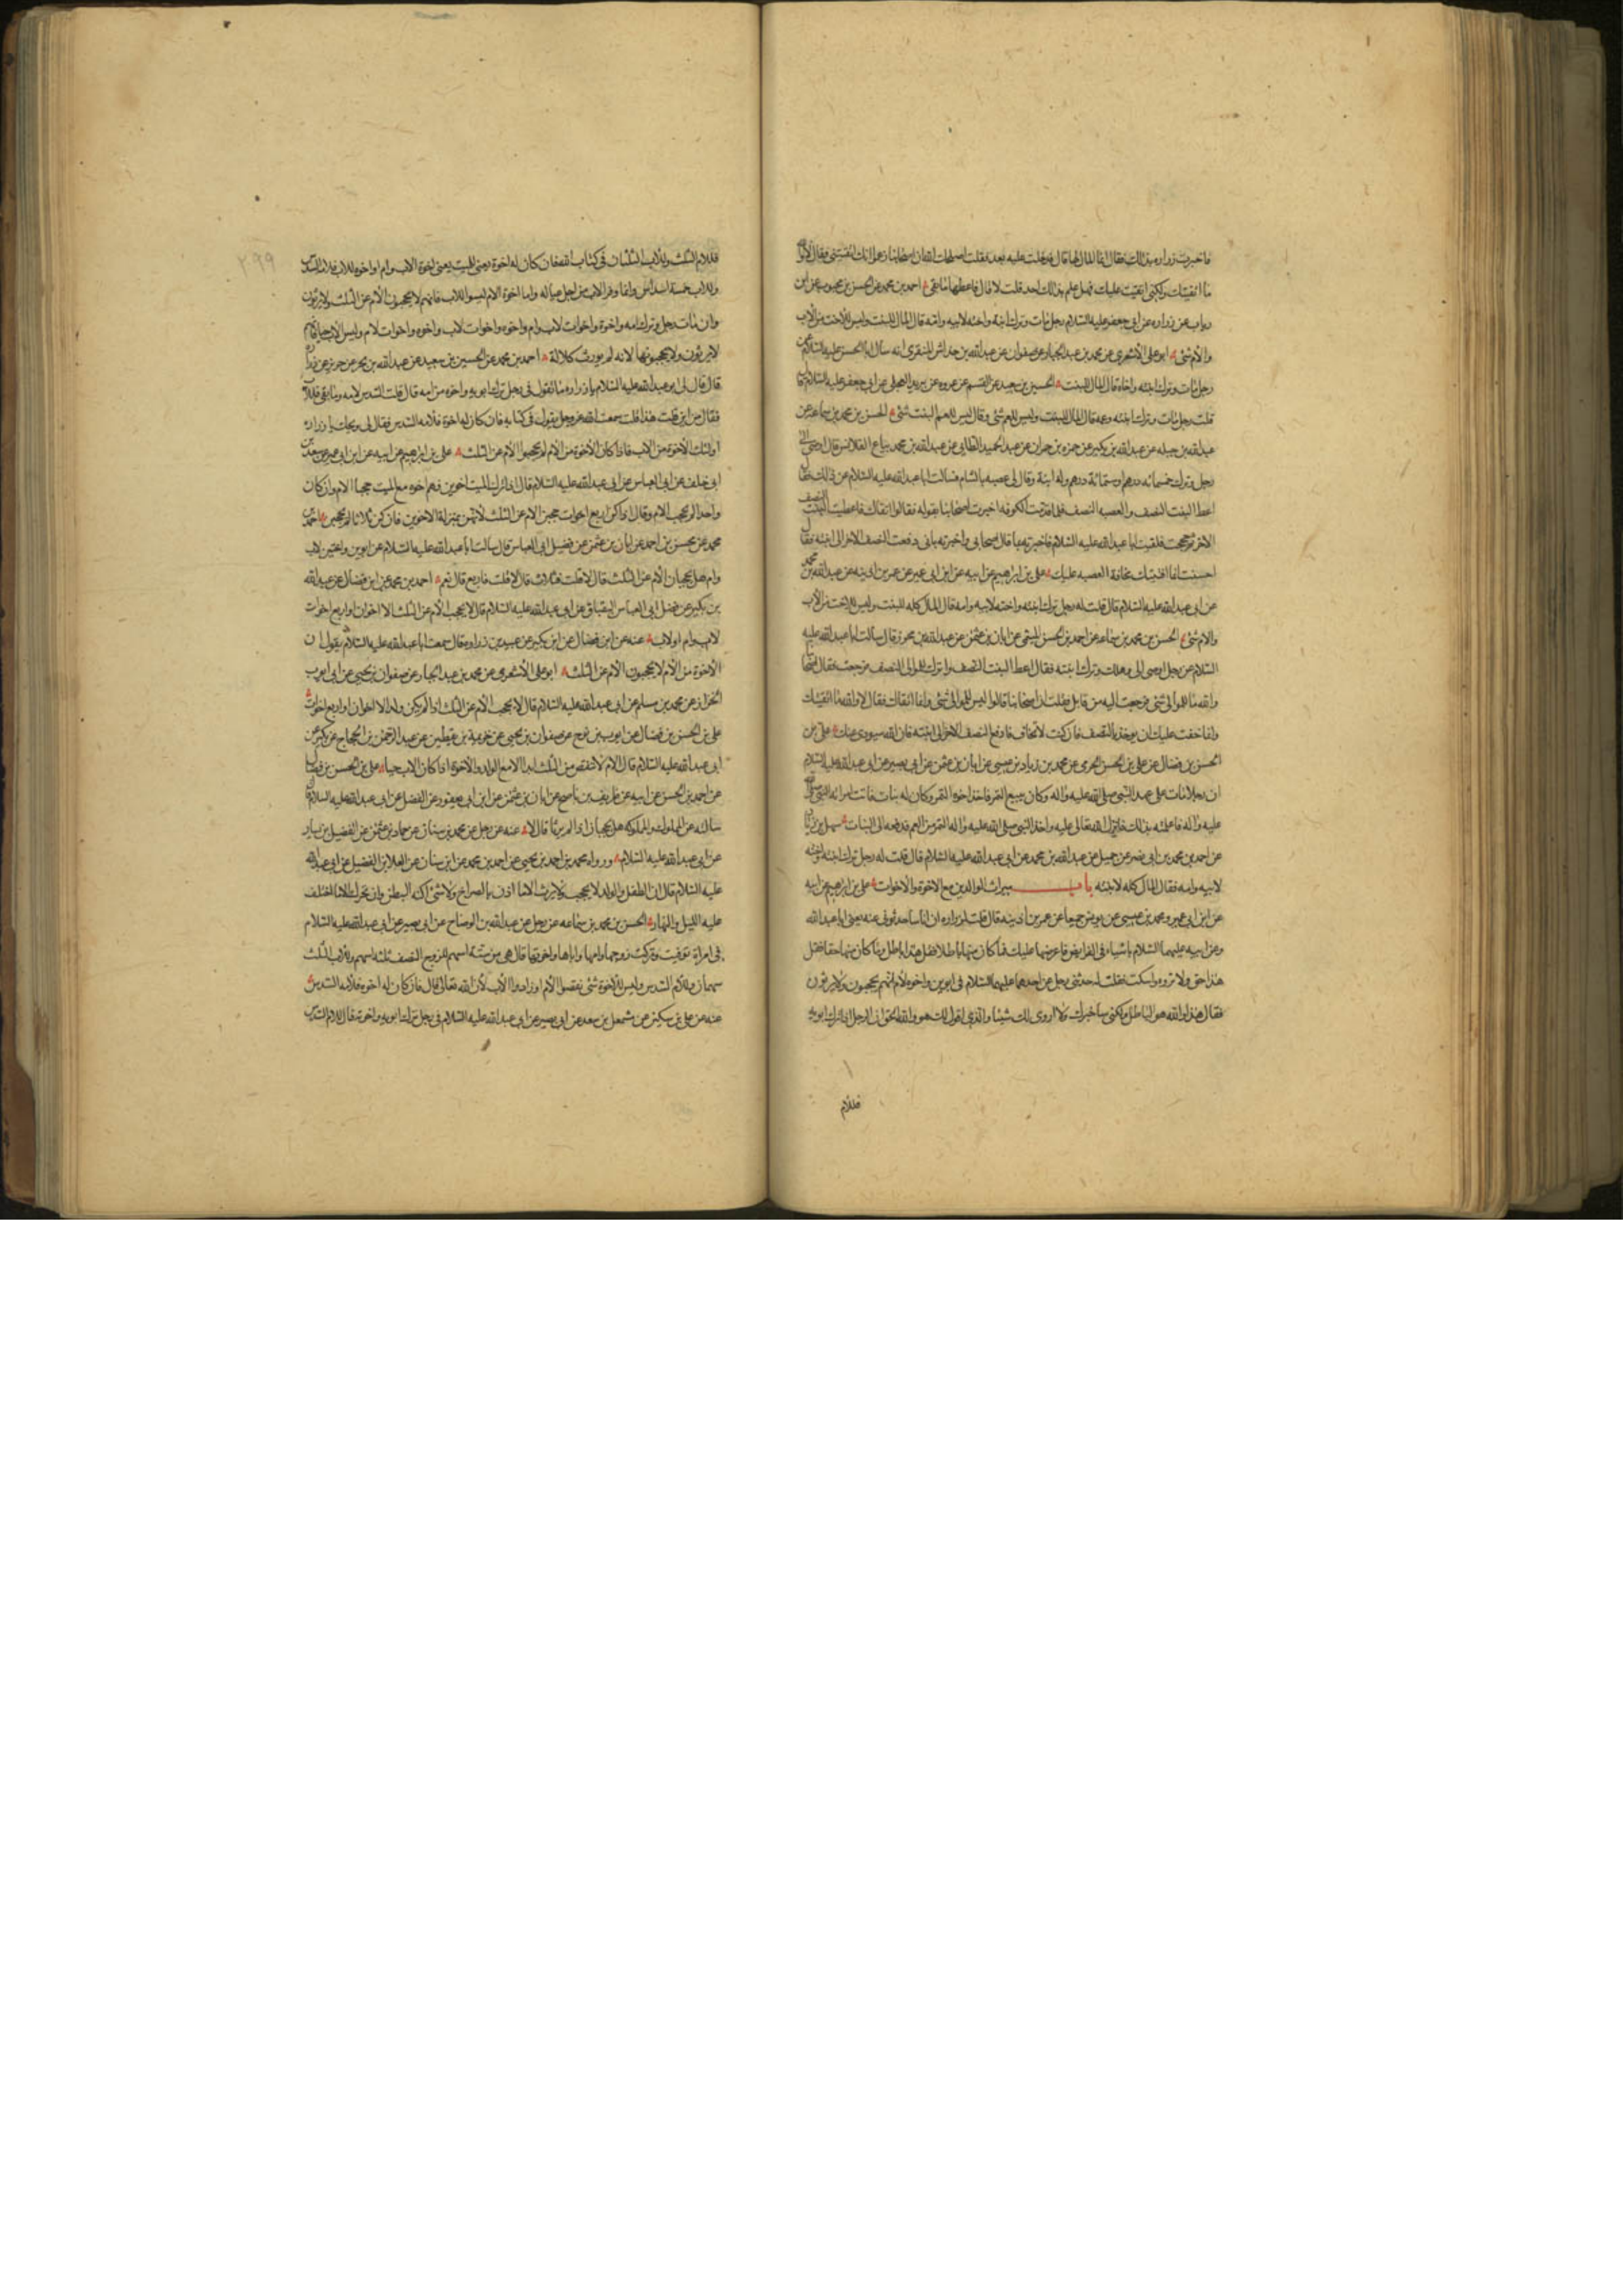 فاخبرت زراره بذلك فقال انما المال لها قال فدخلت عليه بعد فقلت اصلحك الله ان اصحابنا زعموا انك اتقيتنى فقال لا والله
ما اتقيتك ولكنى اتقيت عليك فهل علم بذلك احد قلت لا قال فاعطها ما بقى احمد بن محمد عن الحسن بن محبوب عن ابن
رباب عن زراره عن ابى جعفر عليه السلام رجل مات وترك ابنته واخته لابيه وامه قال المال للبنت وليس للاخت من الاب
والام شئ ابو على الاشعرى عن محمد بن عبد الجبار عن صفوان عن عبدالله بن خداش المنقرى انه سال ابا الحسن عليه السلام عن
رجل مات وترك ابنته واخاه قال المال للبنت الحسين بن سعيد عن القسم بن عروه عن بريد العجلى عن ابى جعفر عليه السلام قا
قلت رجل مات وترك ابنته وعمه قال المال للبنت وليس للعم شئ وقال ليس للعم مع البنت شئ الحسن بن محمد بن سماعه عن
عبدالله بن جبله عن عبدالله بن بكير عن حمزه بن حمران عن عبد الحميد الطائى عن عبدالله بن محمد بياع القلانس قال اوصى الى
رجل وترك خمسمائه درهم او ستمائة درهم وله ابنة وقال لى عصبه بالشام فسالت ابا عبدالله عليه السلام عن ذلك فقال
اعط البنت النصف والعصبه النصف فلما قدمت الكوفه اخبرت اصحابنا بقوله فقالوا اتقاك فاعطيت البنت النصف
الاخر ثم حججت فلقيت ابا عبدالله عليه السلام فاخبرته بما قال اصحابى واخبرته بانى دفعت النصف الاخر الى ابنته فقال
احسنت انما افتيتك مخافة العصبه عليك على بن ابراهيم عن ابيه عن ابن ابى عمير عن عمر بن اذينه عن عبدالله بن محمد
عن ابى عبدالله عليه السلام قال قلت له رجل ترك ابنته واخته لابيه وامه قال المال كله للبنت وليس للاخت من الاب
والام شئ الحسن بن محمد بن سماعه عن احمد بن الحسن الميثمى عن ابان بن عثمن عن عبدالله بن محرز قال سالت ابا عبدالله عليه
السلام عن رجل اوصى الى وهلك وترك ابنته فقال اعط البنت النصف واترك للموالى النصف فرجعت فقال اصحابنا
والله ما للموالى شئ فرجعت اليه من قابل فقلت ان اصحابنا قالوا ليس للموالى شئ وانما اتقاك فقال لا والله ما اتقيتك
وانما خفت عليك ان توخذ بالنصف فان كنت لا تخاف فادفع النصف الاخر الى ابنته فان الله سيودى عنك على بن
الحسن بن فضال عن على بن الحسن الجرمى عن محمد بن زياد بن عيسى عن ابان بن عثمن عن ابى بصير عن ابى عبدالله عليه السلام
ان رجلا مات على عهد النبى صلى الله عليه واله وكان يبيع التمر فاخذ اخوه التمر وكان له بنات فاتت امراته النبى صلى الله
عليه واله فاعلمته بذلك فانزل الله تعالى عليه فاخذ النبى صلى الله عليه واله التمر من العم فدفعه الى البنات سهل بن زياد
عن احمد بن محمد بن ابى نصر عن جميل عن عبدالله بن محمد عن ابى عبدالله عليه السلام قال قلت له رجل ترك ابنته واخته
لابيه وامه فقال المال كله لابنته باب ميراث الوالدين مع الاخوة والاخوات على بن ابراهيم عن ابيه
عن ابن ابى عمير ومحمد بن عيسى عن يونس جميعا عن عمر بن اذينه قال قلت لزراره ان اناسا حدثونى عنه يعنى ابا عبدالله
وعن ابيه عليهما السلام باشياء فى الفرايض فاعرضها عليك فما كان منها باطلا فقل هذا باطل وما كان منها حقا فقل
هذا حق ولا تروه واسكت فقلت له حدثنى رجل عن احدهما عليهما السلام فى ابوين واخوه لام انهم يحجبون ولا يرثون
فقال هذا والله هو الباطل ولكنى ساخبرك ولا اروى لك شيئا والذى اقول لك هو والله الحق ان الرجل اذا ترك ابويه
فللام
٢٩٩
فللام الثلث وللاب الثلثان فى كتاب الله فان كان له اخوة يعنى للميت يعنى اخوة الاب وام او اخوه للاب فلامه السدس
وللاب خمسة اسداس وانما وفر للاب من اجل عياله واما اخوة الام ليسوا للاب فانهم لا يحجبون الام عن الثلث ولا يرثون
وان مات رجل وترك امه واخوة واخوات لاب وام واخوه واخوات لاب واخوه واخوات لام وليس الاب حيا فانهم
لا يرثون ولا يحجبونها لانه لم يورث كلالة احمد بن محمد عن الحسين بن سعيد عن عبدالله بن بحر عن حريز عن زراره
قال قال لى ابو عبدالله عليه السلام يا زراره ما تقول فى رجل ترك ابويه واخوه من امه قال قلت السدس لامه وما بقى فللاب
فقال من اين قلت هذا قلت سمعت الله عز وجل يقول فى كتابه فان كان له اخوة فلامه السدس فقال لى ويحك يا زراره
اولئك الاخوة من الاب فاذا كان الاخوة من الام لم يحجبوا الام عن الثلث على بن ابراهيم عن ابيه عن ابن ابى عمير عن سعد بن
ابى خلف عن ابى العباس عن ابى عبدالله عليه السلام قال اذا ترك الميت اخوين فهم اخوه مع الميت حجبا الام وان كان
واحدا لم يحجب الام وقال اذا كن اربع اخوات حجبن الام عن الثلث لانهن بمنزلة الاخوين فان كن ثلاثا لم يحجبن احمد بن
محمد عن محسن بن احمد عن ابان بن عثمن عن فضيل ابى العباس قال سالت ابا عبدالله عليه السلام عن ابوين واختين لاب
وام هل يحجبان الام عن الثلث قال لا قلت فثلاث قال لا قلت فاربع قال نعم احمد بن محمد عن ابن فضال عن عبدالله
بن بكير عن فضل ابى العباس البقباق عن ابى عبدالله عليه السلام قال لا يحجب الام عن الثلث الا اخوان او اربع اخوات
لاب وام او لاب عنه عن ابن فضال عن ابن بكير عن عبيد بن زراره قال سمعت ابا عبدالله عليه السلام يقول ان
الاخوة من الام لا يحجبون الام عن الثلث ابو على الاشعرى عن محمد بن عبد الجبار عن صفوان بن يحيى عن ابى ايوب
الخزاز عن محمد بن مسلم عن ابى عبدالله عليه السلام قال لا يحجب الام عن الثلث اذا لم يكن ولد الا اخوان او اربع اخوات
على بن الحسن بن فضال عن ايوب بن نوح عن صفوان بن يحيى عن خزيمة بن يقطين عن عبد الرحمن بن الحجاج عن بكير عن
ابى عبدالله عليه السلام قال الام لا تنقص من الثلث ابدا الا مع الولد والاخوة اذا كان الاب حيا على بن الحسن بن فضال
عن احمد بن الحسن عن ابيه عن ظريف بن ناصح عن ابان بن عثمن عن ابن ابى يعفور عن الفضل عن ابى عبدالله عليه السلام قال
سالته عن المملوك والمملوكه هل يحجبان اذا لم يرثا قال لا عنه عن رجل عن محمد بن سنان عن حماد بن عثمن عن الفضيل بن يسار
عن ابى عبدالله عليه السلام ورواه محمد بن احمد بن يحيى عن احمد بن محمد عن ابن سنان عن العلا بن الفضيل عن ابى عبدالله
عليه السلام قال ان الطفل والوليد لا يحجب ولا يرث الا ما اذن بالصراخ ولا شئ اكنه البطن وان تحرك الا ما اختلف
عليه الليل والنهار الحسن بن محمد بن سماعه عن رجل عن عبدالله بن الوضاح عن ابى بصير عن ابى عبدالله عليه السلام
فى امراة توفيت وتركت زوجها وامها واباها واخوتها قال هى من ستة اسهم للزوج النصف ثلثه اسهم وللاب الثلث
سهمان وللام السدس وليس للاخوة شئ نقصوا الام وزادوا الاب لان الله تعالى قال فان كان له اخوة فلامه السدس
عنه عن على بن سكين عن مشمعل بن سعد عن ابى بصير عن ابى عبدالله عليه السلام فى رجل ترك ابويه واخوته قال للام السدس